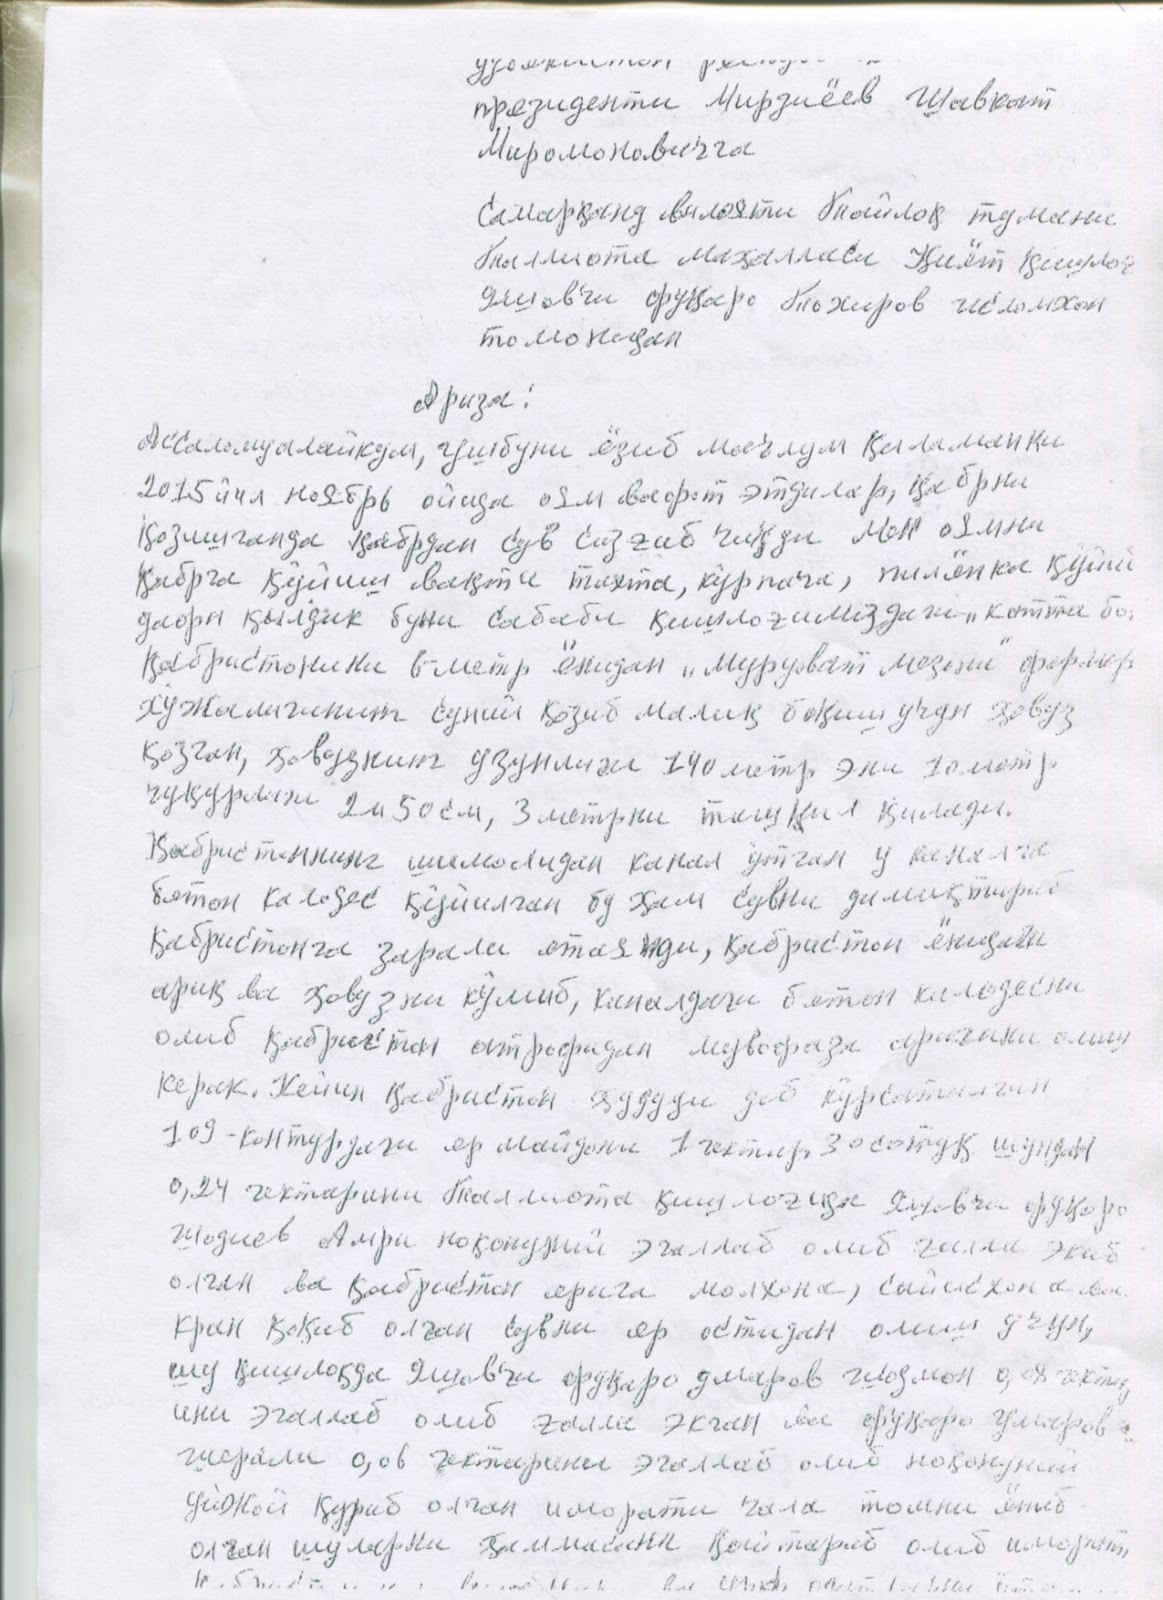 президенти Мирзиёев Шавкат
Миромоновичга
Самарқанд вилояти Тайлоқ тумани
маҳалласи Қиёт қишлоғ
Яшовчи фуқаро Тохиров Исломхон
томонидан
Ариза:
Ассаломуалайкум, ушбуни ёзиб маълум қиламанки
2015 йил ноябрь ойида оям вафот этдилар, қабрни
қозишганда қабрдан сув сизғиб чиқди мен оямни
қабрга қўйиш вақти тахта, кўрпача, пилёнка қўйиб
дафн қилдик буни сабаби қишлоғимиздаги „катта бо
қабристонини 6-метр ёнидан „Мурувват мезони" фермер
хўжалигининг суний қозиб малиқ боқиш учун ҳовуз
қозган, ҳовузнинг узунлиги 140 метр эни 10 метр
чуқурлиги 2м 50см, 3метрни ташкил қилади.
Қабристоннинг шимолидан канал ўтган у каналга
бетон калодес қўйилган бу ҳам сувни димиқтириб
қабристонга зарали етаянди, қабристон ёнидаги
ариқ ва ҳовузни кўмиб, каналдаги бетон калодесни
олиб қабристон атрофидан мувофаза ариғини олиш
керак. Кейин қабристон ҳудуди деб кўрсатилган
109-контурдаги ер майдони 1 гектар 30 сотух шундан
0,24 гектарини қишлоғида яшовчи фуқаро
Шодиев Амри ноқонуний эгаллаб олиб ғалла экиб
олган ва қабристон ерига молхона, сайисхона ва
кран қоқиб олган сувни ер остидан олиш учун,
шу қишлоқда яшовчи фуқаро Умаров Шозмон
ини эгаллаб олиб ғалла экган ва фуқаро Умаров
Шерали 0,06 гектарини эгаллаб олиб ноқонуний
уйжой қуриб олган иморати чала томни ёпиб
олган шуларни ҳаммасини қайтариб олиб иморат